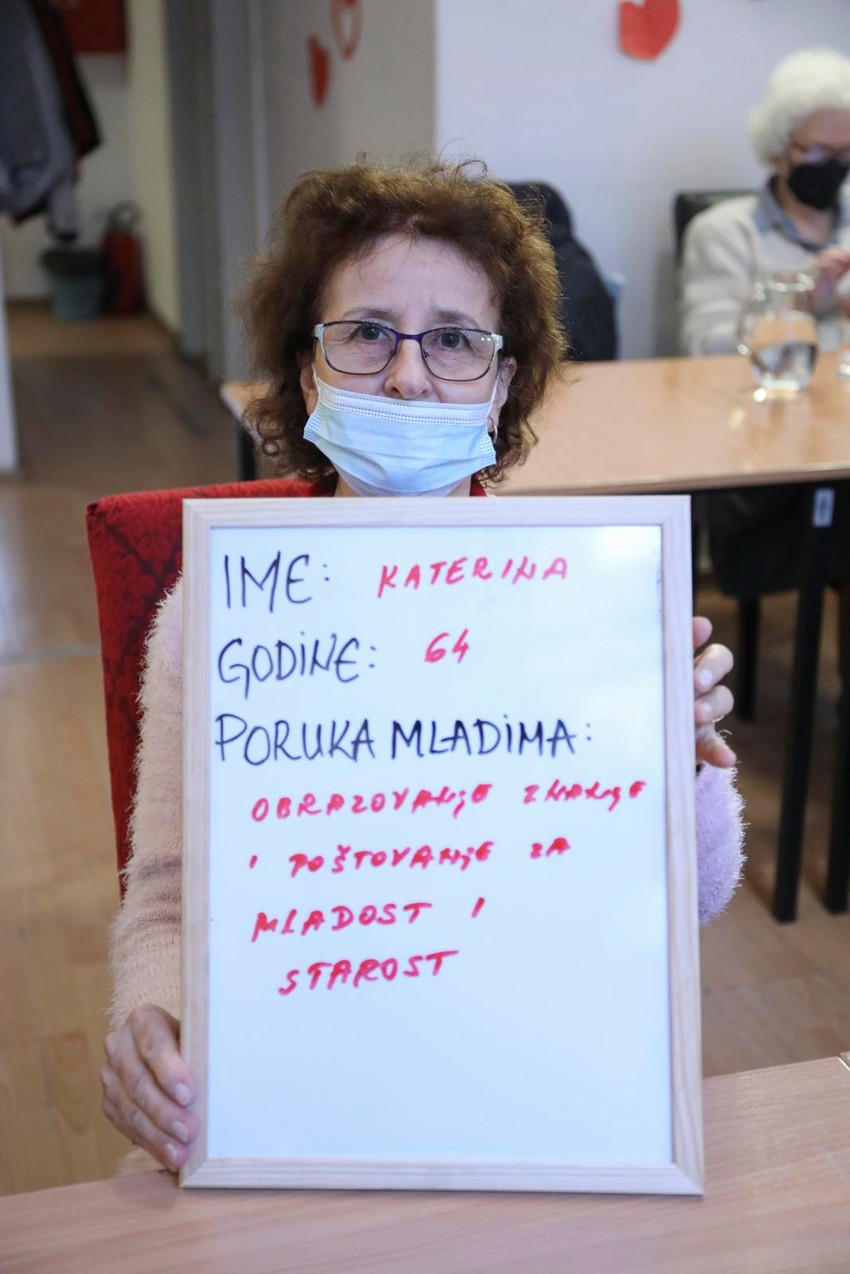 IME: KATERINA
GODINE: 64
PORUKA MLADIMA:
OBRAZOVANjE ZNANjE
I POŠTOVANjE ZA
MLADOST I
STAROST